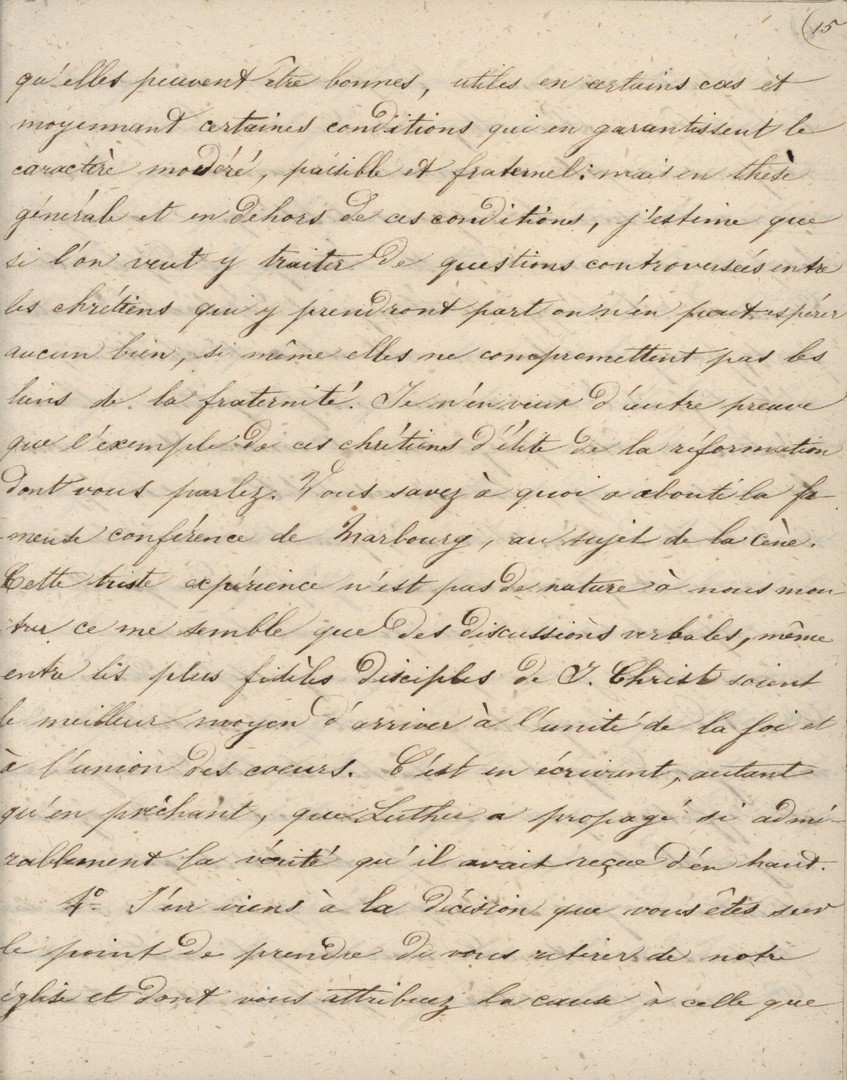 15
qu'elles peuvent être bonnes, utiles en certains cas et
moyennant certaines conditions qui en garantissent le
caractère modéré, paisible et fraternel: mais en thèse
générale et en dehors de ces conditions, j'estime que
si l'on veut y traiter de questions controversées entre
les chrétiens qui y prendront part on n'en peut espérer
aucun bien, si même elles ne compromettent pas les
liens de la fraternité. Je n'en veux d'autre preuve
que l'exemple de ces chrétiens d'élite de la réformation
dont vous parlez. Vous savez à quoi a abouti la fa-
-meuse conférence de Marbourg, au sujet de la cène.
Cette triste expérience n'est pas de nature à nous mon
trer ce me semble que des discussions verbales, même
entre les plus fidèles disciples de J. Christ soient
le meilleur moyen d'arriver à l'unité de la foi et
à l'union des coeurs. C'est en écrivant, autant
qu'en prêchant, que Luther a propagé si admi-
rablement la vérité qu'il avait reçue d'en haut.
4º J'en viens à la décision que vous êtes sur
le point de prendre de vous retirer de notre
église et dont vous attribuez la cause à celle que